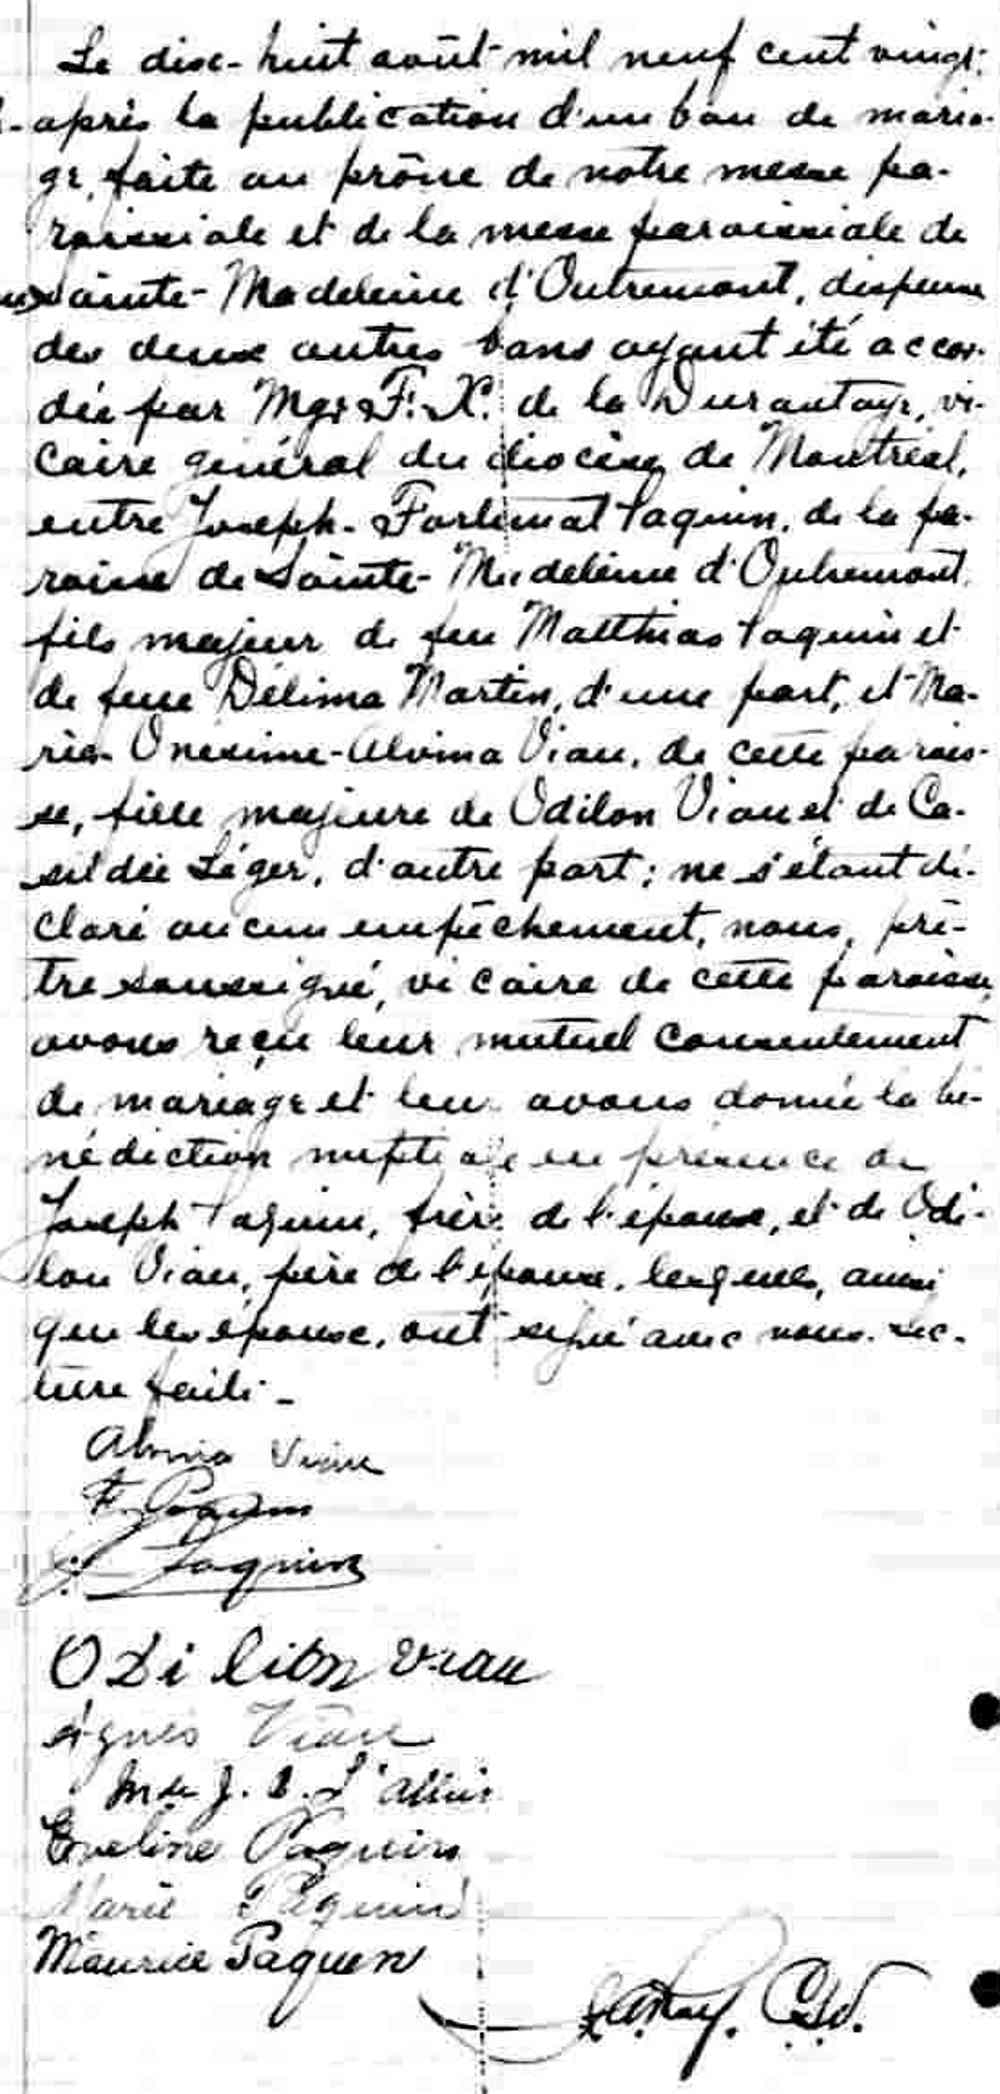 Le dix-huit août mil neuf cent vingt,
après la publication d'un ban de maria-
ge, faite au prône de notre messe pa-
roissiale et de la messe paroissiale de
Sainte-Madeleine d'Outremont, dispense
des deux autres bans ayant été accor-
dée par Mgr F.-X. de la Durantaye, vi-
caire général du diocèse de Montréal,
entre Joseph-Fortunat Paquin, de la pa-
roisse de Sainte-Madeleine d'Outremont,
fils majeur de feu Matthias Paquin et
de feue Délima Martin, d'une part, et Ma-
rie-Onésime-Alvina Viau, de cette parois-
se, fille majeure de Odilon Viau et de Ca-
sildée Léger, d'autre part; ne s'étant dé-
claré aucun empêchement, nous, prê-
tre soussigné, vicaire de cette paroisse,
avons reçu leur mutuel consentement
de mariage et leur avons donné la bé-
nédiction nuptiale en présence de
Joseph Paquin, frère de l'époux, et de Odi-
lon Viau, père de l'épouse, lesquels, ainsi
que les époux, ont signé avec nous. Lec-
ture faite._
Alvina Viau
F. Paquin
J. Paquin
Odilion Viau
Agnes Viau
Mde J.
Eveline Paquin
Marie Paquin
Maurice Paquin